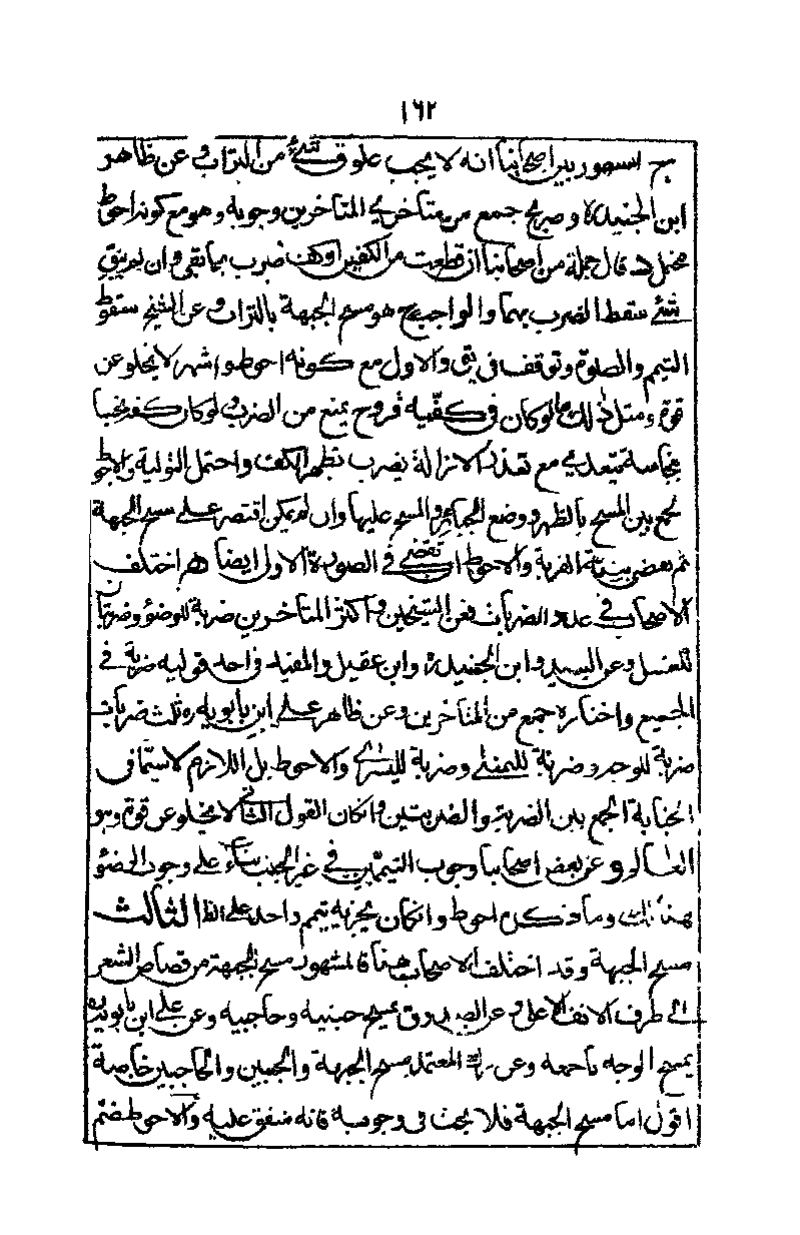 ١٦٢
ج المشهور بين اصحابنا انه لا يجب علوق شئ من التراب و عن ظاهر
ابن الجنيد ره و صريح جمع من متأخرى المتاخرين وجوبه و هو مع كونه احوط
محتمل د قال جملة من اصحابنا ان قطعت من الكفين او كف ضرب بما بقى و ان لم يبق
شئ سقط الضرب بهما و الواجب ح هو مسح الجبهة بالتراب و عن الشيخ سقوط
التيمم و الصلوة و توقف فى يى و الاول مع كونه احوط و اشهر لا يخلو عن
قوة و مثل ذلك ما لو كان فى كفيه قروح يمنع من الضرب و لو كان كفه نجسا
بنجاسة متعدية مع تعذر الازالة يضرب بظهر الكف و احتمل التولية و الاحوط
الجمع بين المسح بالظهر و وضع الجباير و المسح عليها و ان لم يمكن اقتصر على مسح الجبهة
ثم بعض بنية القربة و الاحوط ان تقضى فى الصورة الاولى ايضا هـ اختلف
الاصحاب فى عدد الضربات فعن الشيخين و اكثر المتاخرين ضربة للوضوء و ضربتان
للغسل و عن السيد و ابن الجنيد ره و ابن عقيل و المفيد فى احد قوليه ضربة فى
الجميع و اختاره جمع من المتاخرين و عن ظاهر على ابن بابويه ره ثلث ضربات
ضربة للوجه و ضربة لليمنى و ضربة لليسرى و الاحوط بل اللازم لا سيما فى
الجنابة الجمع بين الضربة و الضربتين و ان كان القول الثانى لا يخلو عن قوة و هو
العالم و عن بعض اصحابنا وجوب التيممين فى غير الجنب بناء على وجوب الوضوء
هنالك و ما ذكره احوط و ان كان يجزيه تيمم واحد على الظ الثالث
مسح الجبهة و قد اختلف الاصحاب هنا فالمشهور مسح الجبهة من قصاص الشعر
الى طرف الانف الاعلى و عن الصدوق يمسح جبينيه و حاجبيه و عن على ابن بابويه ره
يمسح الوجه باجمعه و عن المعتمد مسح الجبهة و الجبين و الحاجبين خاصة
اقول اما مسح الجبهة فلا بحث فى وجوبه فانه متفق عليه و الاحوط ضم